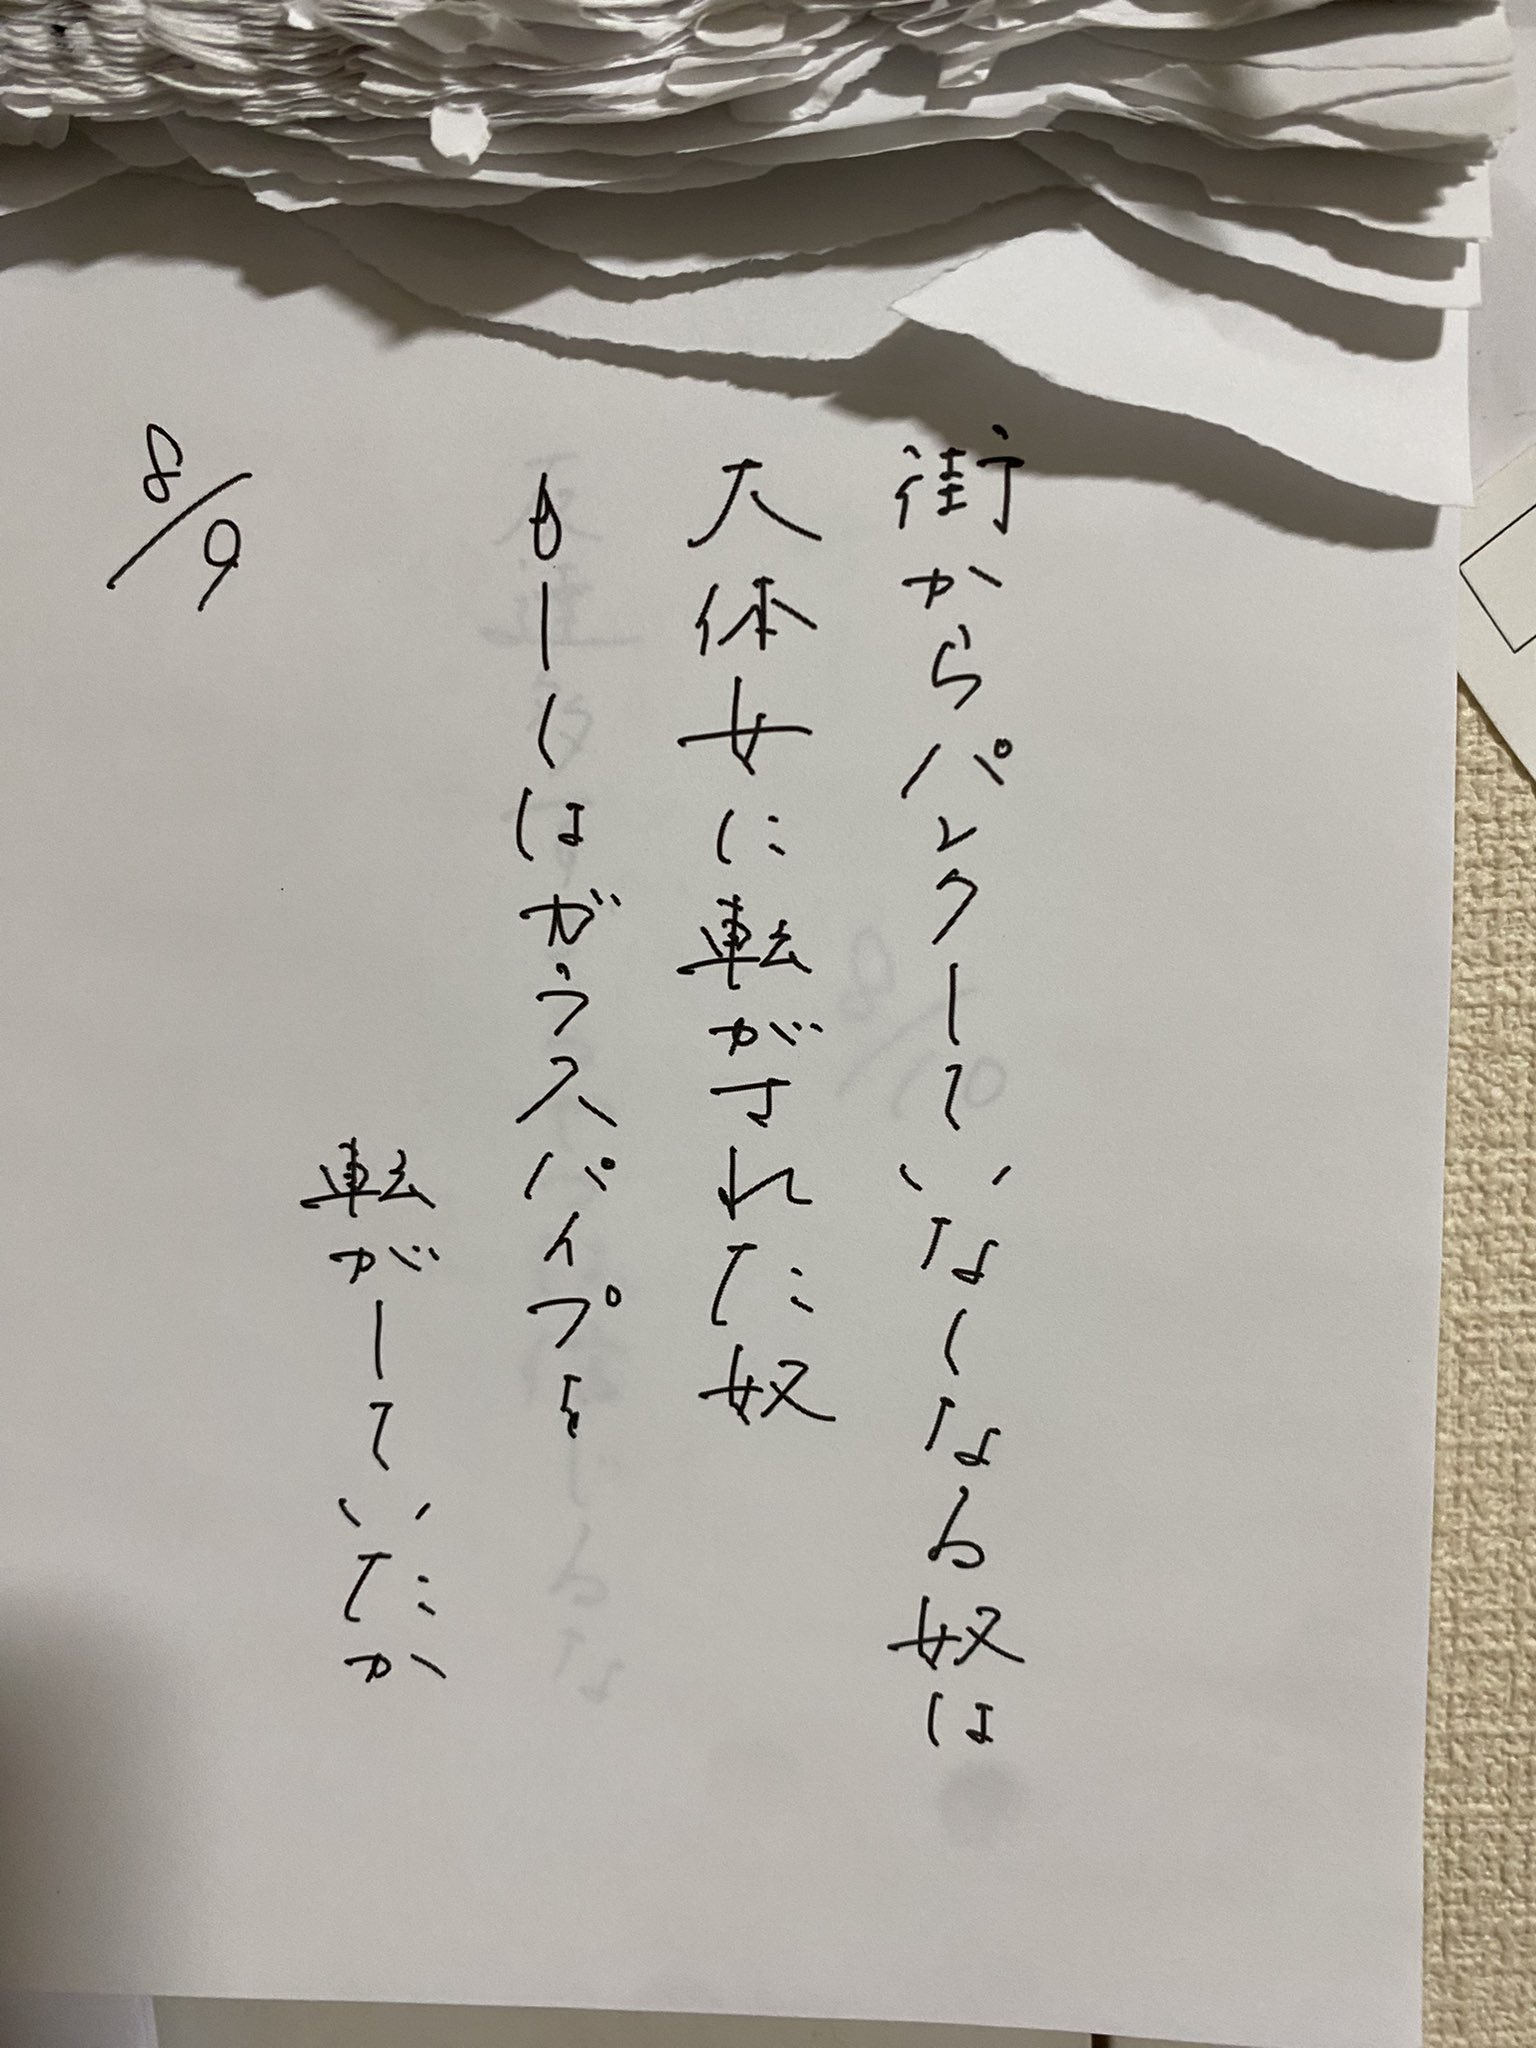 街からパンクしていなくなる奴は
大体女に転がされた奴
もしくはガラスパイプを
転がしていたか
8/9
8/10